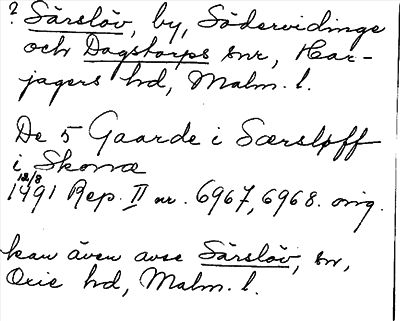 ? Särslöv, by, Södervidinge
och Dagstorps snr, Har-
jagers hd, Malm. l.
De 5 Gaarde i Særsløff
i Skonæ
12/8
1491 Rep. II nr. 6967, 6968. orig.
kan även avse Särslöv, sn,
Oxie hd, Malm. l.